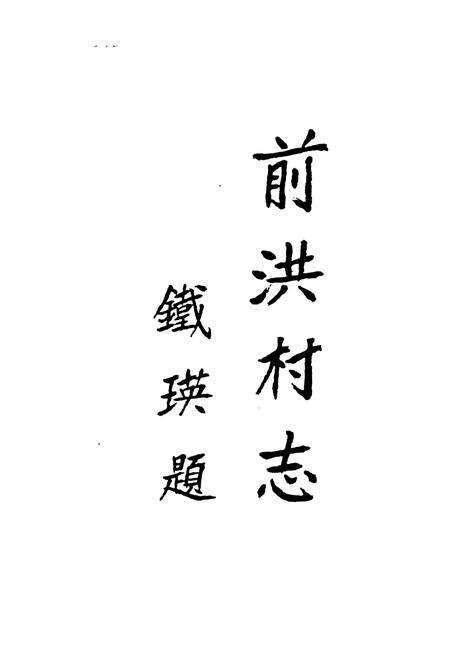 前洪村志
鐵瑛題